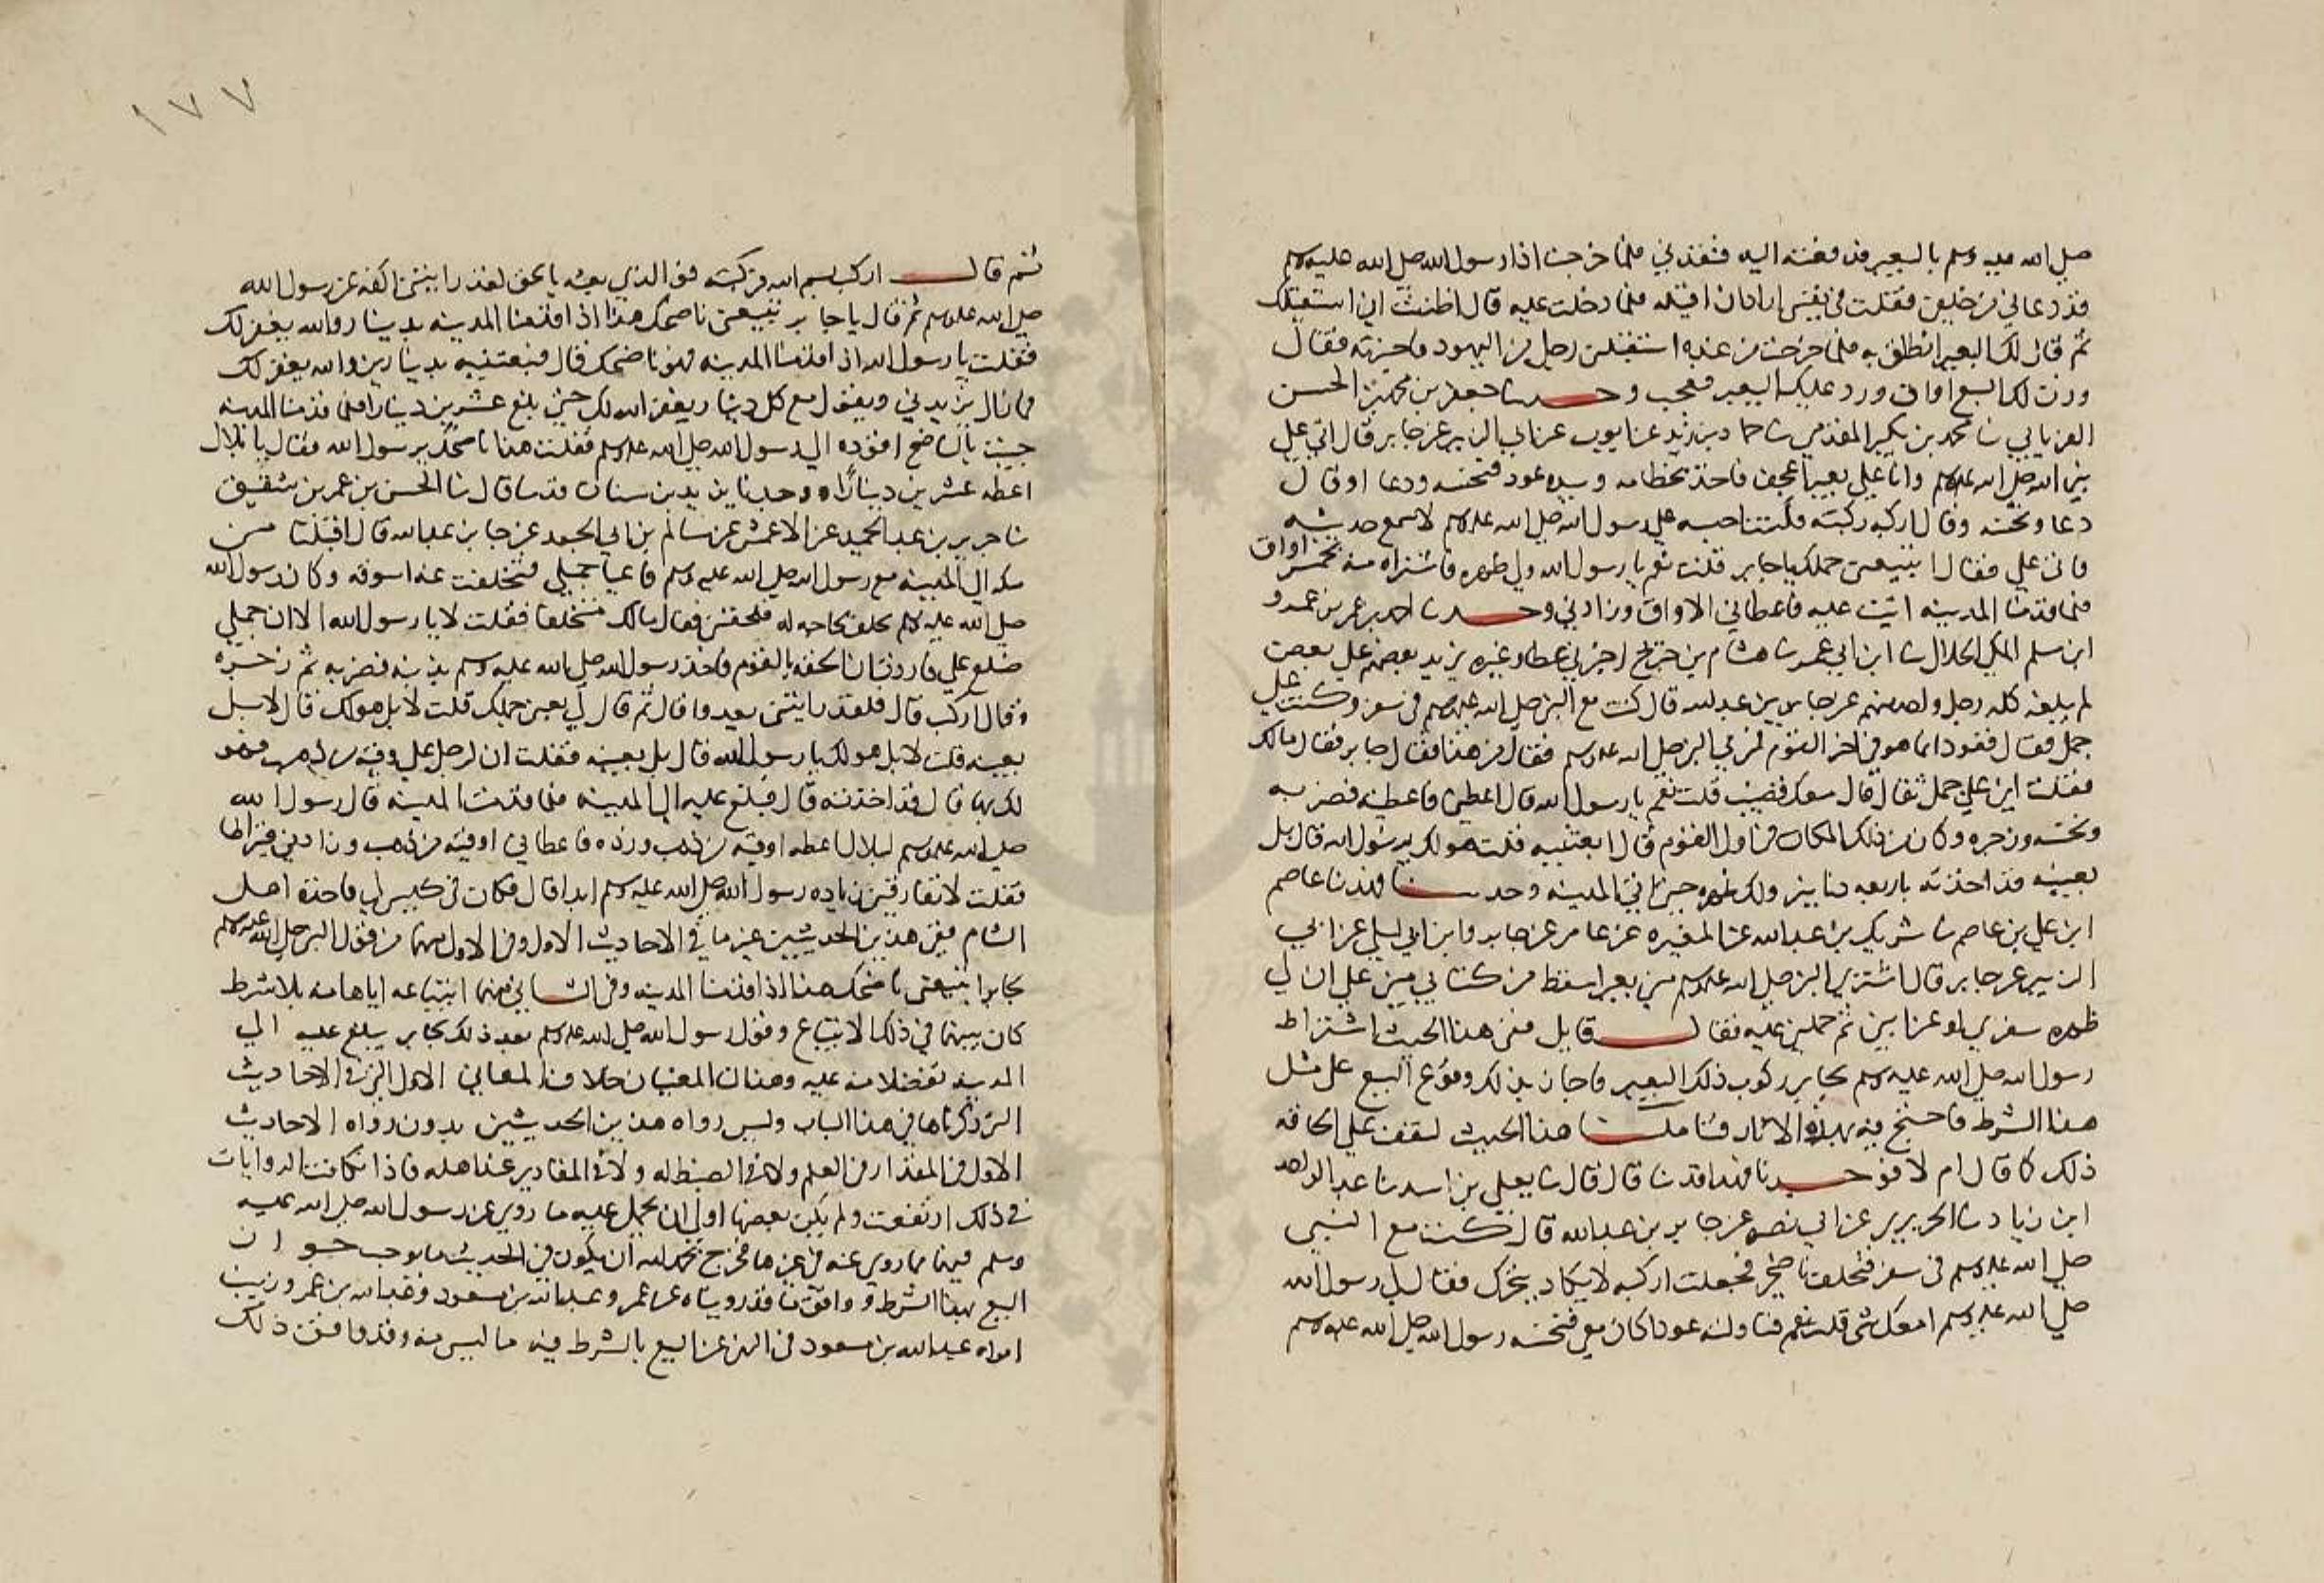 صلى الله عليه وسلم بالبعير فدفعته اليه فنقدني فلما خرجت اذا رسول الله صلى الله عليه وسلم
قد دعاني من خلفي فقلت في نفسي اراد ان اقيله فلما دخلت عليه قال اظننت اني استقيلك
ثم قال لك البعير انطلق به فلما خرجت من عنده استقبلني رجل من اليهود فاخبرته فقال
وزن لك السبع اواق ورد عليك البعير فعجب وحدثنا جعفر بن محمد بن الحسن
الفريابي نا محمد بن بكير المقدمي نا حماد بن زيد عن ايوب عن ابي الزبير عن جابر قال اتى علي
نبي الله صلى الله عليه وسلم وانا على بعير اعجف فاخذ بخطامه وبيده عود فنخسه ودعا او قال
دعا ونخسه وقال اركبه ركبته فكنت احبسه على رسول الله صلى الله عليه وسلم لاسمع حديثه
فاتى علي فقال ابتعني جملك يا جابر قلت نعم يا رسول الله ولي ظهره فاشتراه منه بخمس اواق
فلما قدمنا المدينة اتيت عليه فاعطاني الاواق وزادني وحدثنا احمد بن عمر بن عمرو
ابن سلم المكي الخلال نا ابن ابي عمر نا هشام بن جريج اخبرني عطاء وغيره يزيد بعضهم على بعض
لم يبلغه كله رجل واحد منهم عن جابر بن عبد الله قال كنت مع النبي صلى الله عليه وسلم في سفر وكنت على
جمل ثقال فقود انما هو في اخر القوم فمر بي النبي صلى الله عليه وسلم فقال من هذا فقال جابر فقال مالك
فقلت اني على جمل ثقال قال معك قضيب قلت نعم يا رسول الله قال اعطني فاعطيته فضربه
ونخسه وزجره وكان من ذلك المكان من اول القوم قال ابعتنيه قلت هو لك يرسول الله قال بل
بعنيه قد اخذته باربعه دنانير ولك ظهره حتى تاتي المدينه وحدثنا فهد نا عاصم
ابن علي بن عاصم نا شريك بن عبد الله عن المغيره عن عامر عن جابر وابن ابي ليلى عن ابي
الزبير عن جابر قال اشترى النبي صلى الله عليه وسلم مني بعيرا سقط من كتابي مني على ان لي
ظهره سفري او غزاتي ثم حملني عليه فقال قايل ففي هذا الحديث اشتراط
رسول الله صلى الله عليه وسلم لجابر ركوب ذلك البعير فاجاز بذلك وقوع البيع على مثل
هذا الشرط فاحتج فيه بهذه الاثار فتاملنا هذا الحديث لنقف على الحافه
ذلك كما قال ام لا فوحدنا فهدا قد نا قال قال نا يعلى بن اسد نا عبد الواحد
ابن زياد نا الجريري عن ابي نضره عن جابر بن عبد الله قال كنت مع النبي
صلى الله عليه وسلم في سفر فتخلف ناضحي فجعلت اركبه لا يكاد يتحرك فقال لي رسول الله
صلى الله عليه وسلم امعك شي قلت نعم فناولته عودا كان معي فنخسه رسول الله صلى الله عليه وسلم
١٧٧
ثم قال اركب بسم الله فركبته فو الذي بعثه بالحق لقد رايتني اكفه عن رسول الله
صلى الله عليه وسلم ثم قال يا جابر تبيعني ناضحك هذا اذا قدمنا المدينه بدينار والله يغفر لك
فقلت يا رسول الله اذا قدمنا المدينه فهو ناضحك قال فبعتنيه بدينارين والله يغفر لك
فما زال يزيدني ويقول مع كل دينار يغفر الله لك حتى بلغ عشرين دينارا فلما قدمنا المدينه
جيت بالناضح اقوده الى رسول الله صلى الله عليه وسلم فقلت هذا ناضحك يرسول الله فقال يا بلال
اعطه عشرين دينارا ووجدنا يزيد بن سنان قد نا قال نا الحسن بن عمر بن شقيق
نا جرير بن عبد الحميد عن الاعمش عن سالم بن ابي الجعد عن جابر بن عبد الله قال اقبلنا من
مكه الى المدينه مع رسول الله صلى الله عليه وسلم فاعيا جملي فتخلفت عنه اسوقه وكان رسول الله
صلى الله عليه وسلم تخلف لحاجه له فلحقني فقال مالك متخلفا فقلت لا يا رسول الله الا ان جملي
ضلع علي فاردت ان الحقه بالقوم فاخذ رسول الله صلى الله عليه وسلم بذنبه فضربه ثم زجره
وقال اركب قال فلقد رايتني بعد وقال ثم قال لي بعني جملك قلت لا بل هو لك قال لا بل
بعنيه قلت لا بل هو لك يا رسول الله قال بل بعنيه فقلت ان لرجل علي وقيه من ذهب فهو
لك بها قال قد اخذته قال فبلغ عليه الى المدينه فلما قدمت المدينه قال رسول الله
صلى الله عليه وسلم لبلال اعطه اوقيه من ذهب وزده فاعطاني اوقيه من ذهب وزادني قيراطا
فقلت لا تفارقني زياده رسول الله صلى الله عليه وسلم ابدا قال فكان في كيس لي فاخذه اهل
الشام ففي هذين الحديثين غير ما في الاحاديث الاول وفي الاول منهما من قول النبي صلى الله عليه وسلم
لجابر ابتعني ناضحك هذا اذا قدمنا المدينه وفي الثاني منهما ابتياعه اياها منه بلا شرط
كان بينهما في ذلك الابتياع وقول رسول الله صلى الله عليه وسلم بعد ذلك لجابر يبلغ عليه الى
المدينه تفضلا منه عليه وهذان المعنيان خلاف المعاني الاول التي في الاحاديث
التي ذكرناها في هذا الباب وليس رواه هذين الحديثين بدون رواه الاحاديث
الاول في المقدار في العلم ولا في الضبط له ولا في المقادير عند اهله فاذا تكافت الروايات
في ذلك ارتفعت ولم يكن بعضها اولى ان يحمل عليه ما روي عن رسول الله صلى الله عليه
وسلم فيها مما روي عنه في غيرها فخرج بحمد الله ان يكون في الحديث ما يوجب جواز
البيع بهذا الشرط ووافق ما قد رويناه عن عمر وعبد الله بن مسعود وعبد الله بن عمر وزينب
امراه عبد الله بن مسعود في النهي عن البيع بالشرط فيه ما ليس منه وقد وافق ذلك